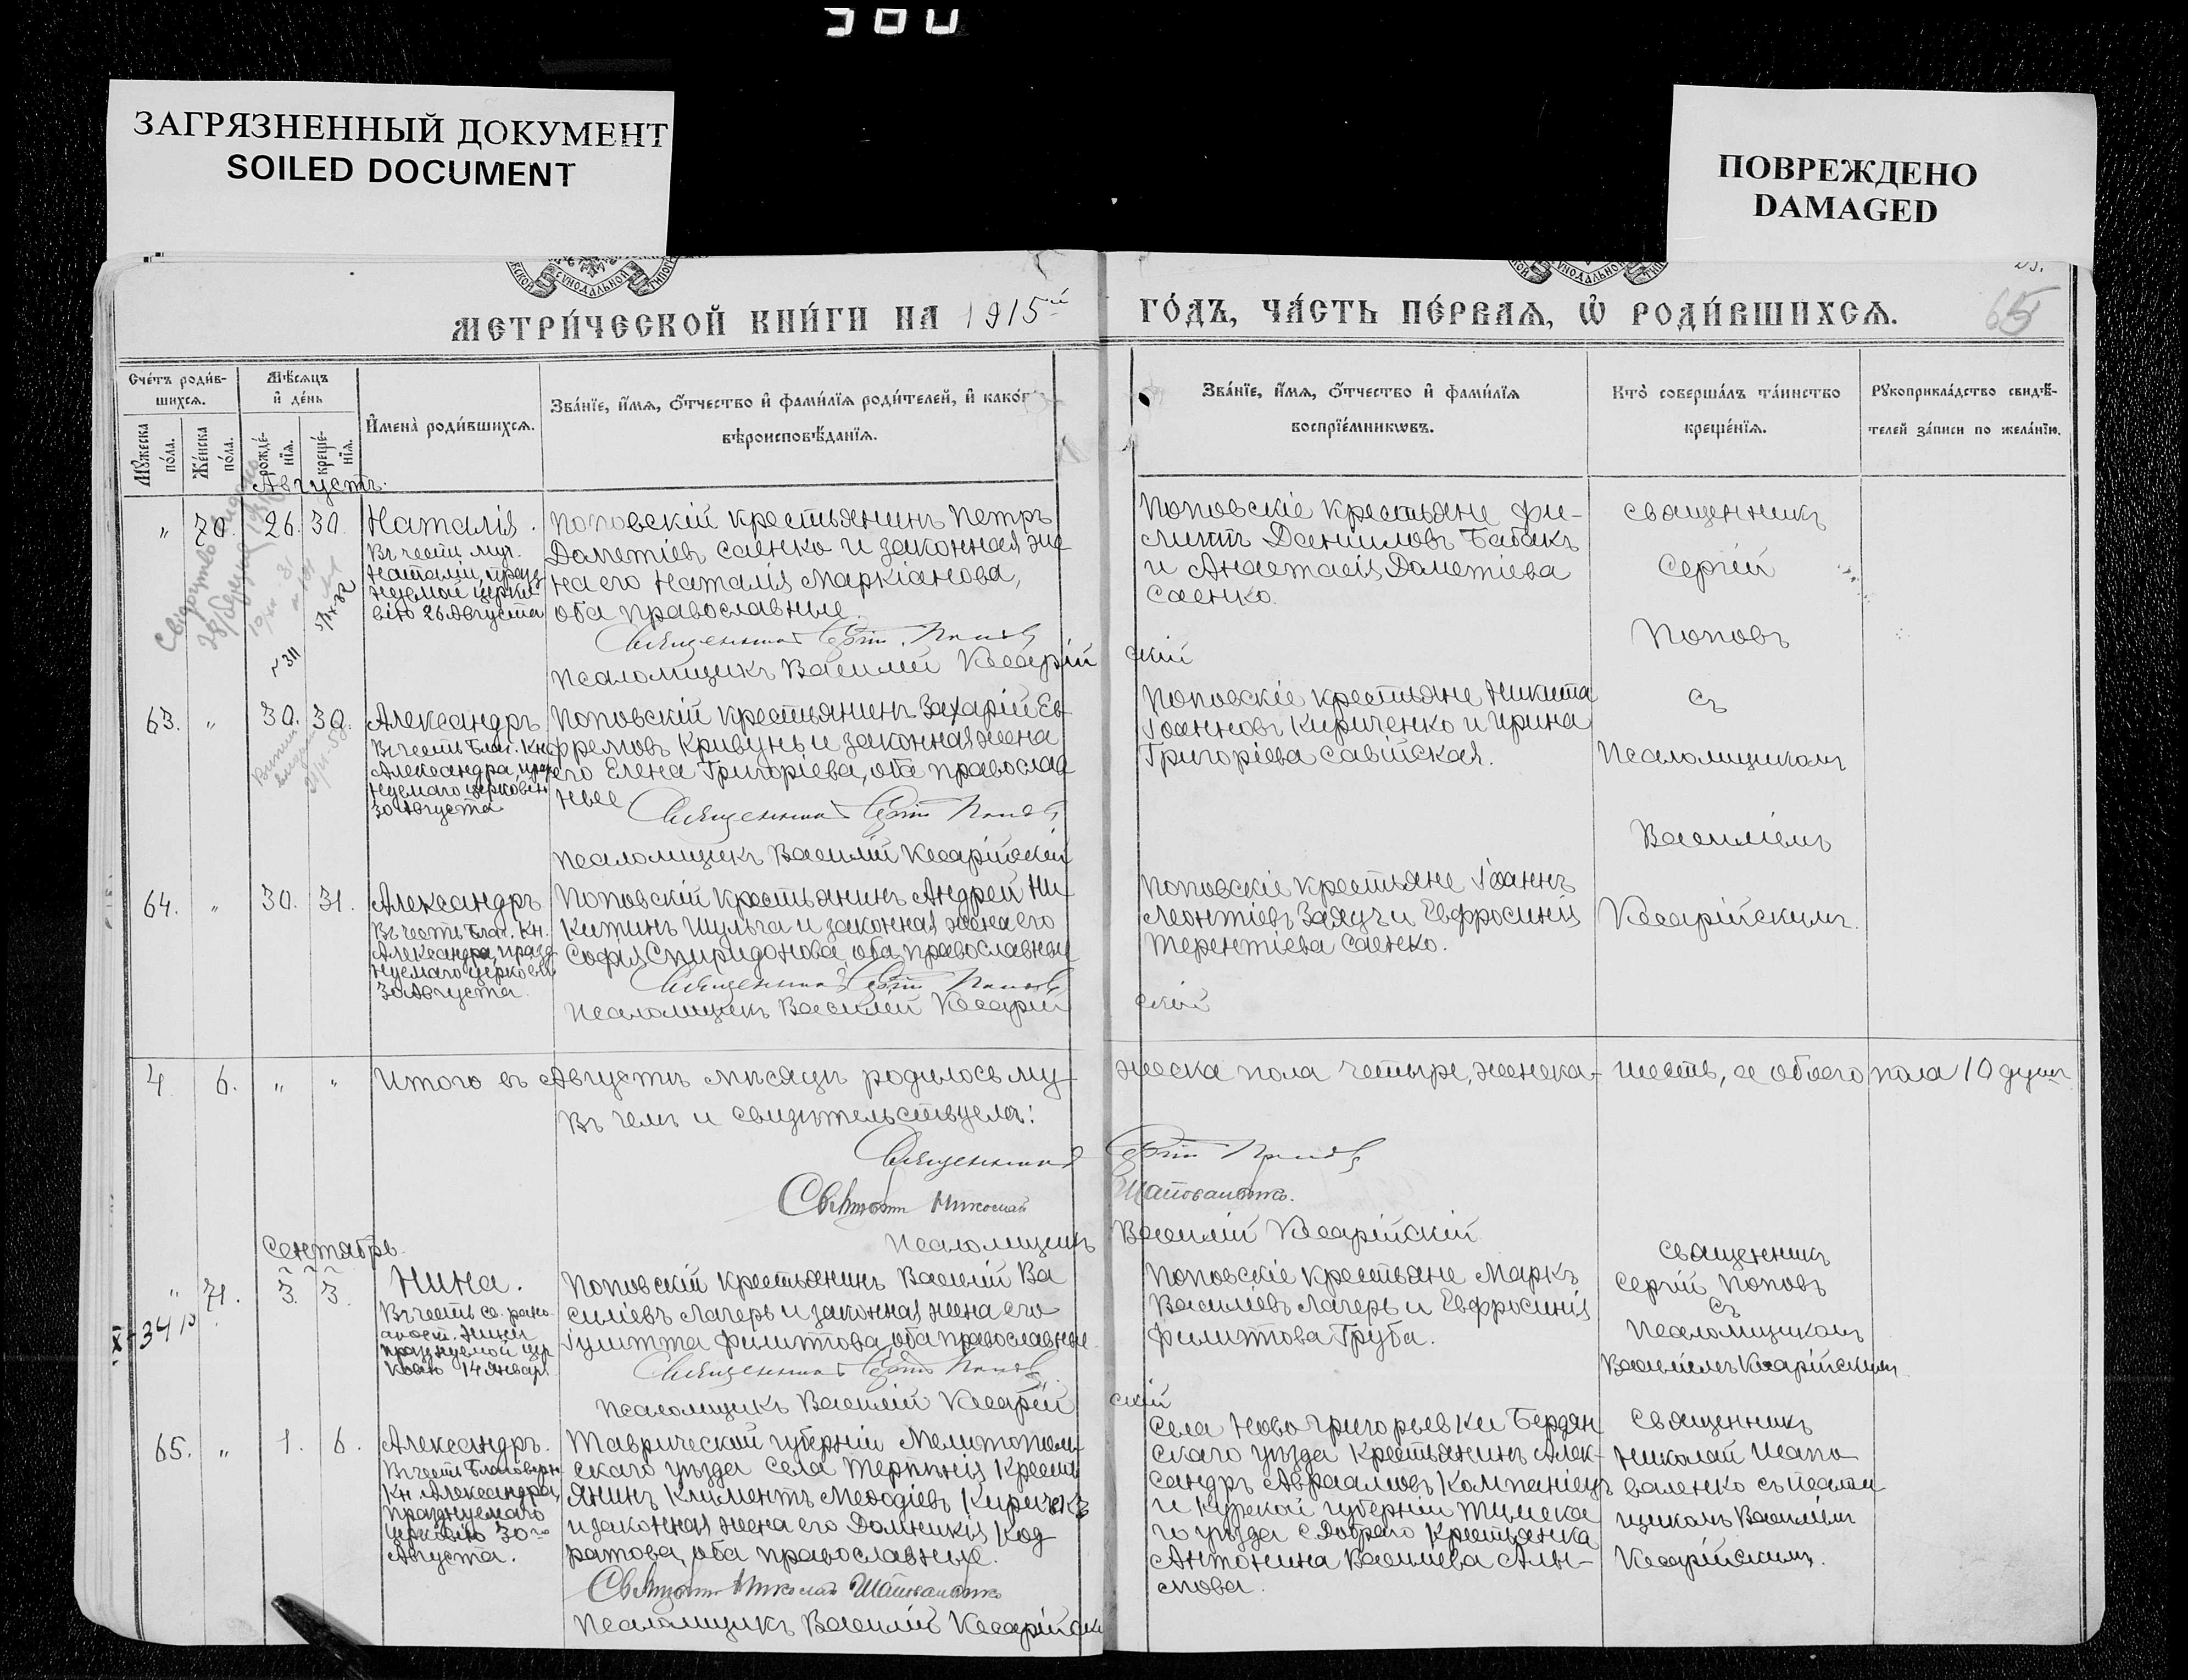 ЗАГРЯЗНЕННЫЙ ДОКУМЕНТ
SOILED DOCUMENT
ПОВРЕЖДЕНО
DAMAGED
65
МЕТРИ́ЧЕСКОЙ КНИ́ГИ НА 1915й ГО́ДЪ, ЧА́СТЬ ПЕ́РВАѦ, Ѡ҆ РОДИ́ВШИХСѦ.
Сче́тъ роди́в-
шихсѧ.
Мѣ́сѧцъ
и҆ де́нь
Мꙋ́жеска
по́ла.
Же́нска
по́ла.
рожде́-
нїѧ.
креще́-
нїѧ.
И҆мена̀ роди́вшихсѧ.
Зва́нїе, и҆́мѧ, ѻ҆́тчество и҆ фами́лїѧ роди́телей, и҆ како́г
вѣроисповѣ́данїѧ.
Зва́нїе, и҆́мѧ, ѻ҆́тчество и҆ фами́лїѧ
воспрїе́мникѡвъ.
Кто̀ соверша́лъ та́инство
креще́нїѧ.
Рꙋкоприкла́дство свидѣ́-
телей за́писи по жела́нїю.
Августъ.
" 70. 26. 30.
Наталія.
Въ честь муч.
Наталіи, празд
нуемой церко
вію 26 Августа
Поповскій крестьянинъ Петръ
Дометіевъ Саенко и законная же
на его Наталія Маркіанова,
оба православные.
Священникъ Сергій Поповъ
Псаломщикъ Василій Кесарій
скій
Поповскіе крестьяне Фи-
липпъ Даниловъ Бабакъ
и Анастасія Дометіева
Саенко.
Священникъ
Сергій
Поповъ
съ
Псаломщикомъ
Василіемъ
Кесарійскимъ.
№ 311
63. " 30. 30.
Александръ
Въ честь Благ. Кн.
Александра, празд
нуемаго церковію
30 Августа
Поповскій крестьянинъ Захарій Ев
фремовъ Кривунь и законная жена
его Елена Григоріева, оба православ
ные
Священникъ Сергій Поповъ
Псаломщикъ Василій Кесарійскій
Поповскіе крестьяне Никита
Іоанновъ Кириченко и Ирина
Григоріева Савійская.
64. " 30. 31.
Александръ
Въ честь Благ. Кн.
Александра, празд
нуемаго церковію
30 Августа.
Поповскій крестьянинъ Андрей Ни
китинъ Шульга и законная жена его
Софія Спиридонова, оба православные
Священникъ Сергій Поповъ
Псаломщикъ Василій Кесарій
скій
Поповскіе крестьяне Іоаннъ
Леонтіевъ Заяцъ и Евфросинія
Терентіева Саенко.
4. 6. " " Итого въ Августѣ мѣсяцѣ родилось му жеска пола четыре, женска- шесть, а обоего пола 10 душъ
Въ чемъ и свидѣтельствуемъ:
Священникъ Сергій Поповъ
Николай Шаповаленко.
Псаломщикъ Василій Кесарійскій
Сентябрь.
" 71. 3. 3.
Нина.
Въ честь св. равно
апост. Нины
празднуемой цер
ковію 14 Января
Поповскій крестьянинъ Василій Ва
силіевъ Лагерь и законная жена его
Іулитта Филиппова, оба православные.
Священникъ Сергій Поповъ
Псаломщикъ Василій Кесарій
скій
Поповскіе крестьяне Маркъ
Василіевъ Лагерь и Евфросинія
Филиппова Груба.
Священникъ
Сергій Поповъ
съ
Псаломщикомъ
Василіемъ Кесарійскимъ
65. " 1. 6.
Александръ.
Въ честь Благовѣрн.
Кн. Александра,
празднуемаго
церковію 30го
Августа.
Таврической губерніи Мелитополь
скаго уѣзда села Терпѣнія Кресть
янинъ Климентъ Меѳодіевъ
и законная жена его Домникія Код
ратова, оба православные.
Николай Шаповаленко
Псаломщикъ Василій Кесарійскі
Села Ново Григорьевки Бердян
скаго уѣзда Крестьянинъ Алек-
сандръ Авраамовъ Компаніецъ
и Курской губерніи Тимска
го уѣзда с Добраго Крестьянка
Антонина Василіева Али-
мова.
Священникъ
Николай Шапо
валенко съ псалом
щикомъ Василіемъ
Кесарійскимъ.